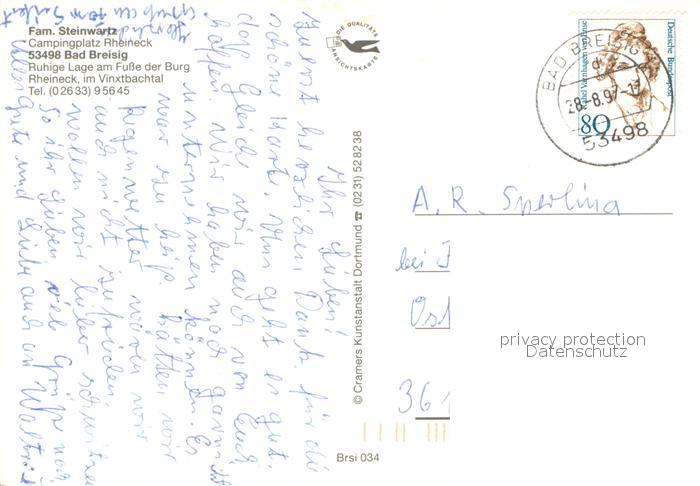 Fam. Steinwartz
Campingplatz Rheineck
53498 Bad Breisig
Ruhige Lage am Fuße der Burg
Rheineck, im Vinxtbachtal
Tel. (0 26 33) 9 56 45
Ihr Lieben!
Zuerst herzlichen Dank für die
schöne Karte. Uns geht es gut.
Gleiche wir auch von Euch
hoffen. Wir haben noch garnicht
unternehmen können. Es
war zu heiß. Hätten wir
Regenwetter wären wir
auch nicht zufrieden.
wollen wir lieber schwitzen
So ihr Lieben viel Grüße noch
Alles Gute und Liebe auch an
DIE QUALITÄTS
ANSICHTSKARTE
© Cramers Kunstanstalt Dortmund ☎ (0231) 528238
Brsi 034
Deutsche Bundespost
Rahel Varnhagen von Ense
80
BAD BREISIG
d
28.-8.97-17
53498
A. R. Sperling
bei
Ost
361
privacy protection
Datenschutz